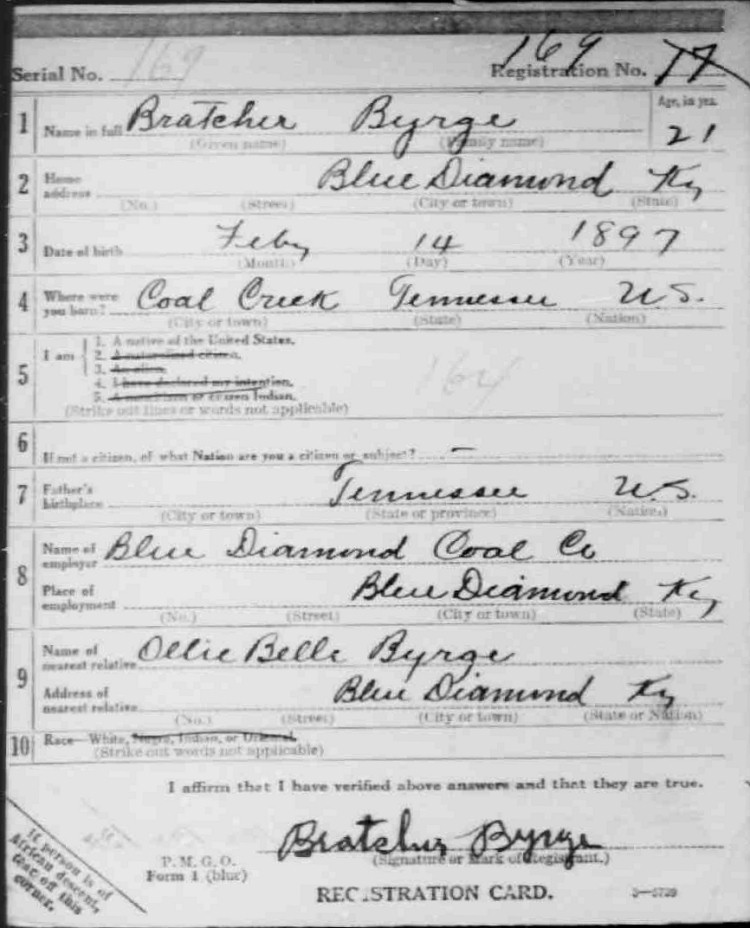 169
Serial No. 169 Registration No. 17
1 Name in full Bratcher Byrge Age, in yrs. 21
(Given name) (Family name)
2 Home address Blue Diamond Ky
(No.) (Street) (City or town) (State)
3 Date of birth Feby 14 1897
(Month) (Day) (Year)
4 Where were you born? Coal Creek Tennessee U.S.
(City or town) (State) (Nation)
5 I am
1. A native of the United States.
2. A naturalized citizen.
3. An alien.
4. I have declared my intention.
5. A noncitizen or citizen Indian.
(Strike out lines or words not applicable)
164
6 If not a citizen, of what Nation are you a citizen or subject? —
7 Father's birthplace Tennessee U.S.
(City or town) (State or province) (Nation)
8 Name of employer Blue Diamond Coal Co
Place of employment Blue Diamond Ky
(No.) (Street) (City or town) (State)
9 Name of nearest relative Ollie Belle Byrge
Address of nearest relative Blue Diamond Ky
(No.) (Street) (City or town) (State or Nation)
10 Race—White, Negro, Indian, or Oriental.
(Strike out words not applicable)
I affirm that I have verified above answers and that they are true.
Bratcher Byrge
(Signature or Mark of Registrant.)
P. M. G. O.
Form 1 (blue)
REGISTRATION CARD.
3—5729
If person is of
African descent,
tear off this
corner.